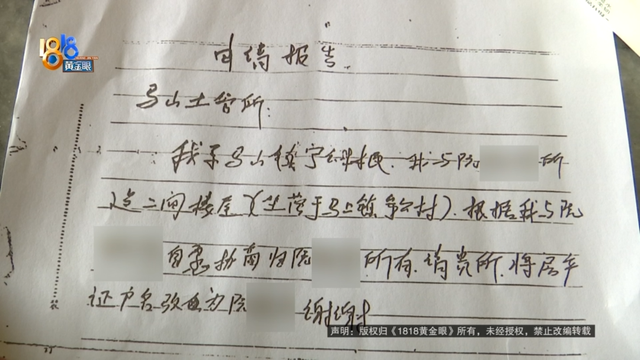 1818
黄金眼
申请报告
马山土管所:
我系马山镇宁 村 . 我与阮 所
造二间楼屋(坐落于马山镇 村). 根据我与阮
自愿协商归阮 所有. 请贵所. 将居 
证户名改 为阮 谢谢
声明：版权归《1818黄金眼》所有，未经授权，禁止改编转载